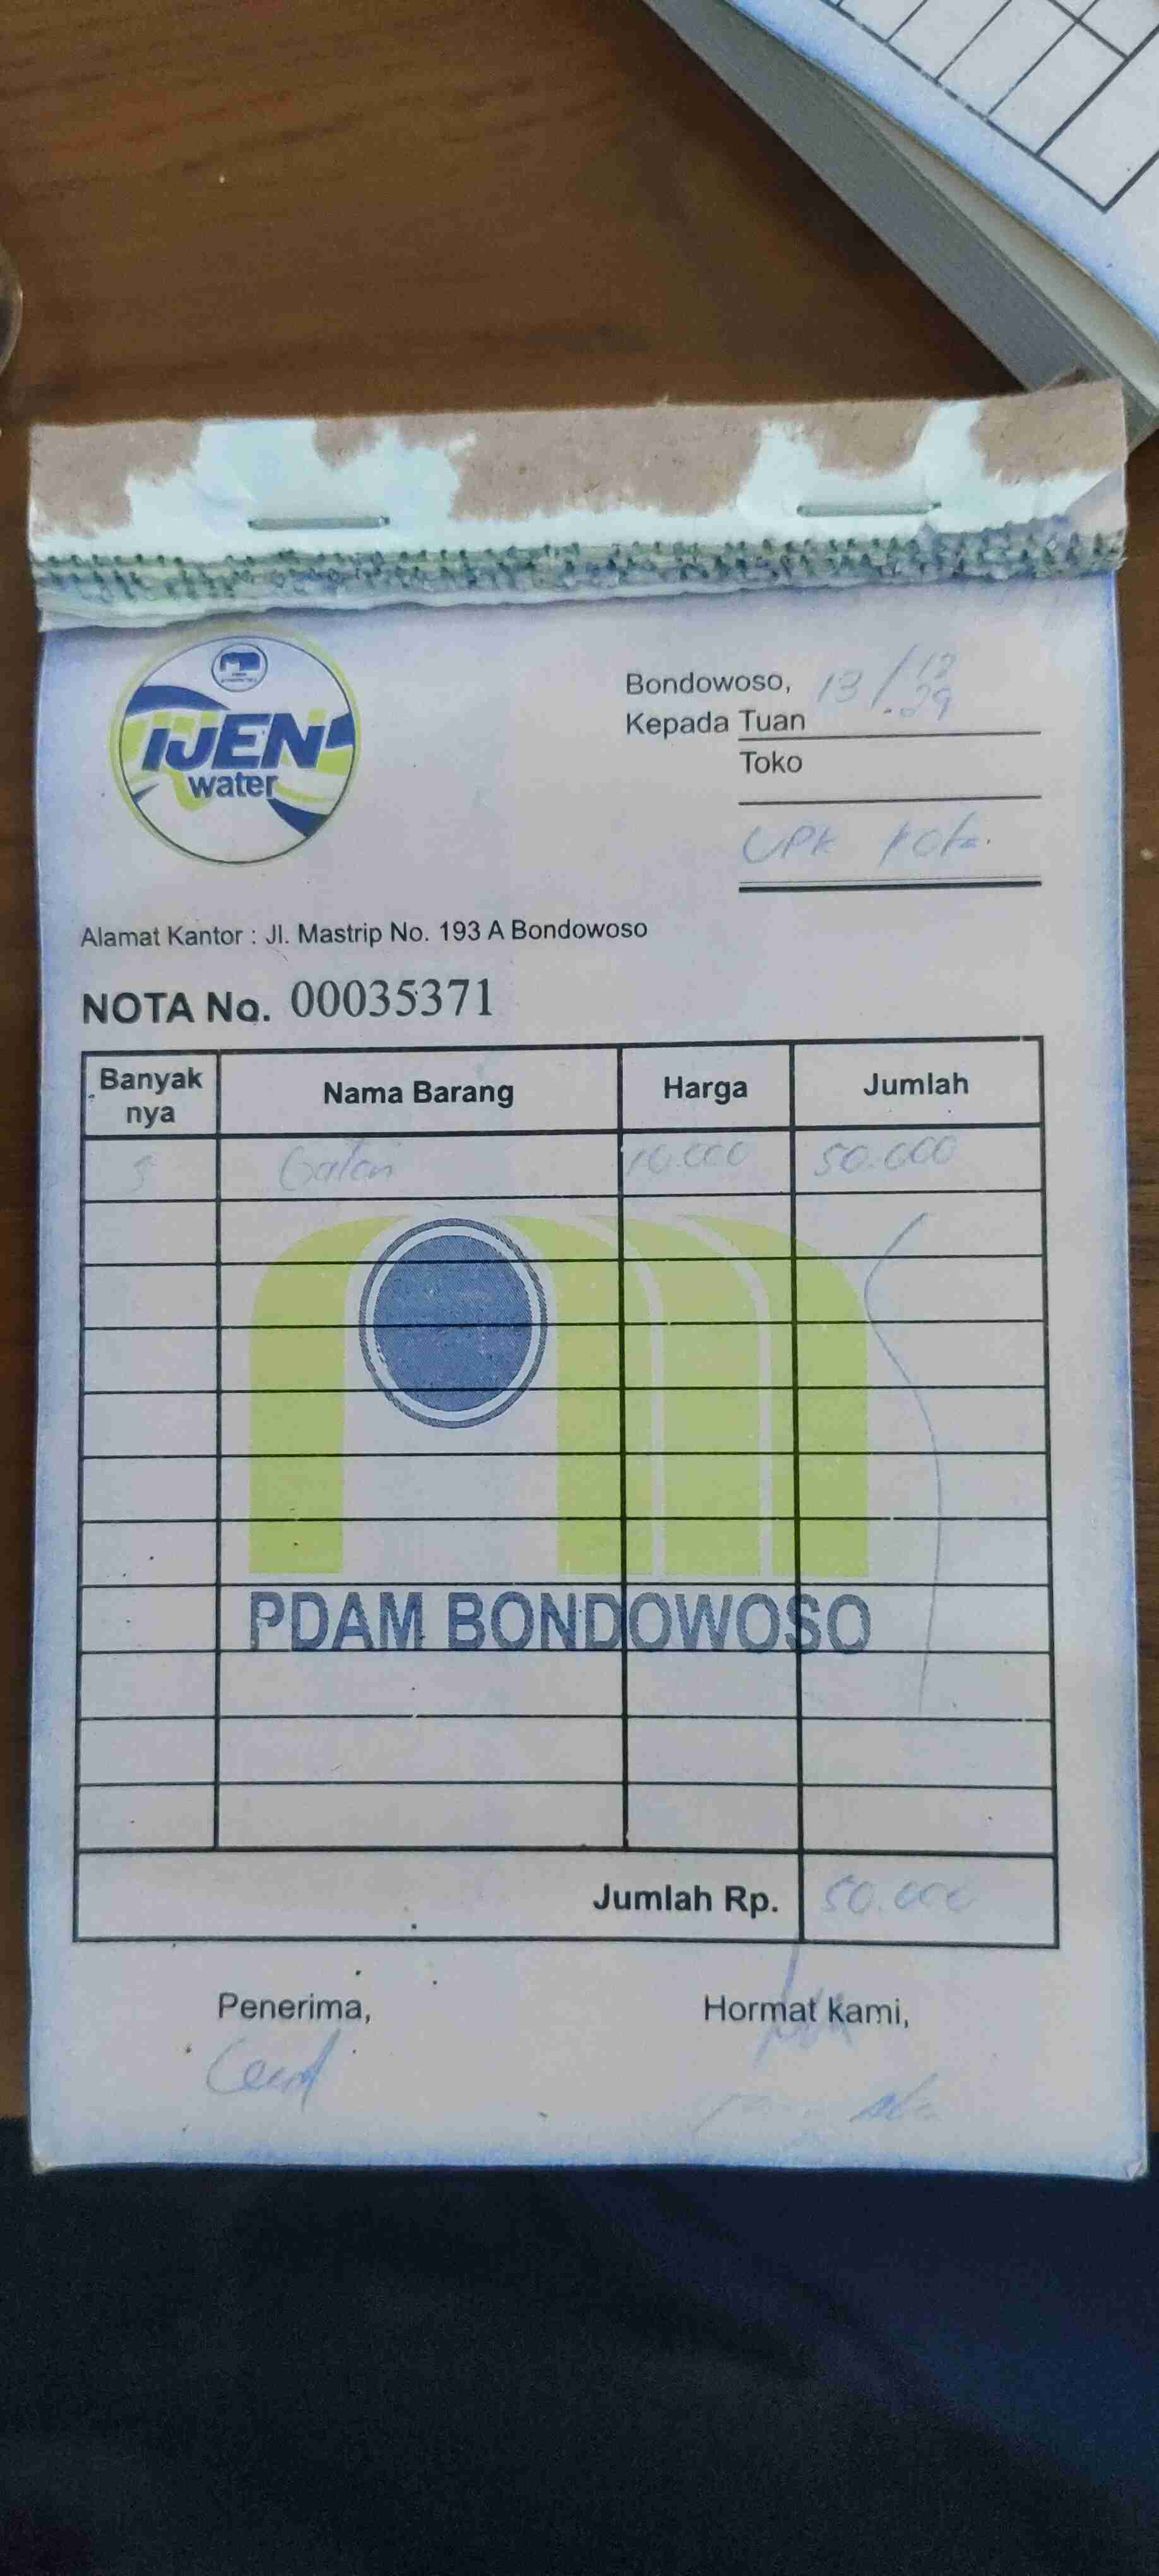 IJEN
water
Bondowoso, 13/12
Kepada Tuan
Toko
UPK Kota.
Alamat Kantor : Jl. Mastrip No. 193 A Bondowoso
NOTA No. 00035371
Banyak nya Nama Barang Harga Jumlah
5 Galon 10.000 50.000
PDAM BONDOWOSO
Jumlah Rp. 50.000
Penerima, Hormat kami,